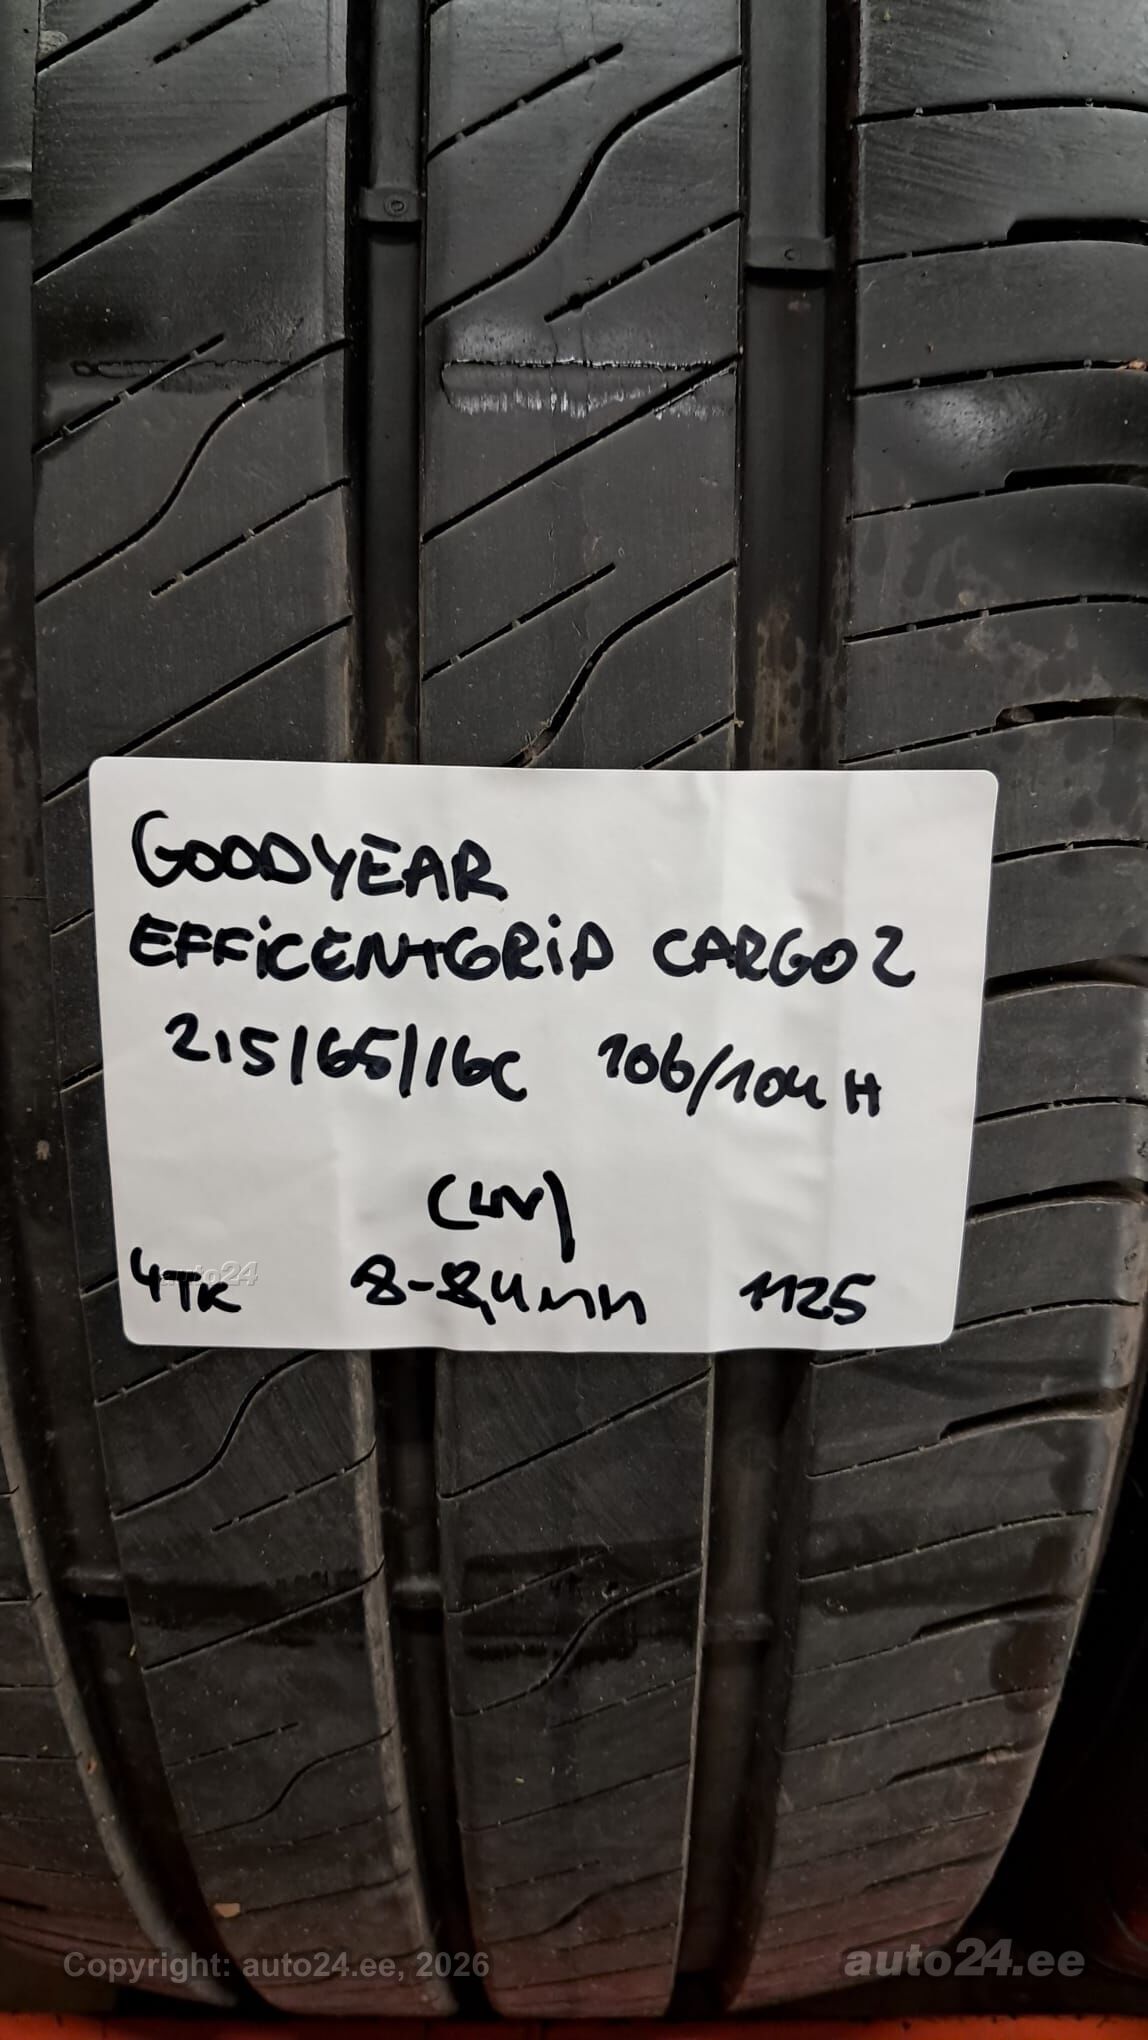 GOODYEAR
EFFICENTGRID CARGO 2
215/65/16C 106/104H
(LUV)
4TK 8-8,4mm 1125
auto24
Copyright: auto24.ee, 2026
auto24.ee